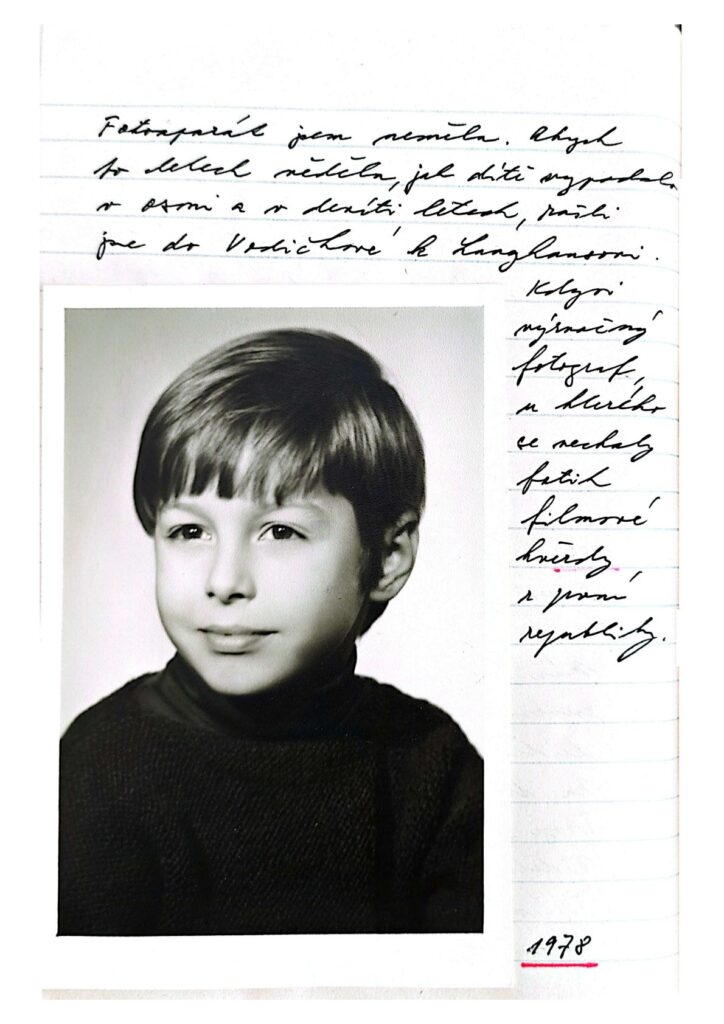 Fotoaparát jsem neměla. Abych
po letech věděla, jak dítě vypadalo
v osmi a v devíti letech, zašli
jsme do Vodičkové k Langhansovi.
Kdysi
význačný
fotograf,
u kterého
se nechaly
fotit
filmové
hvězdy
z první
republiky.
1978